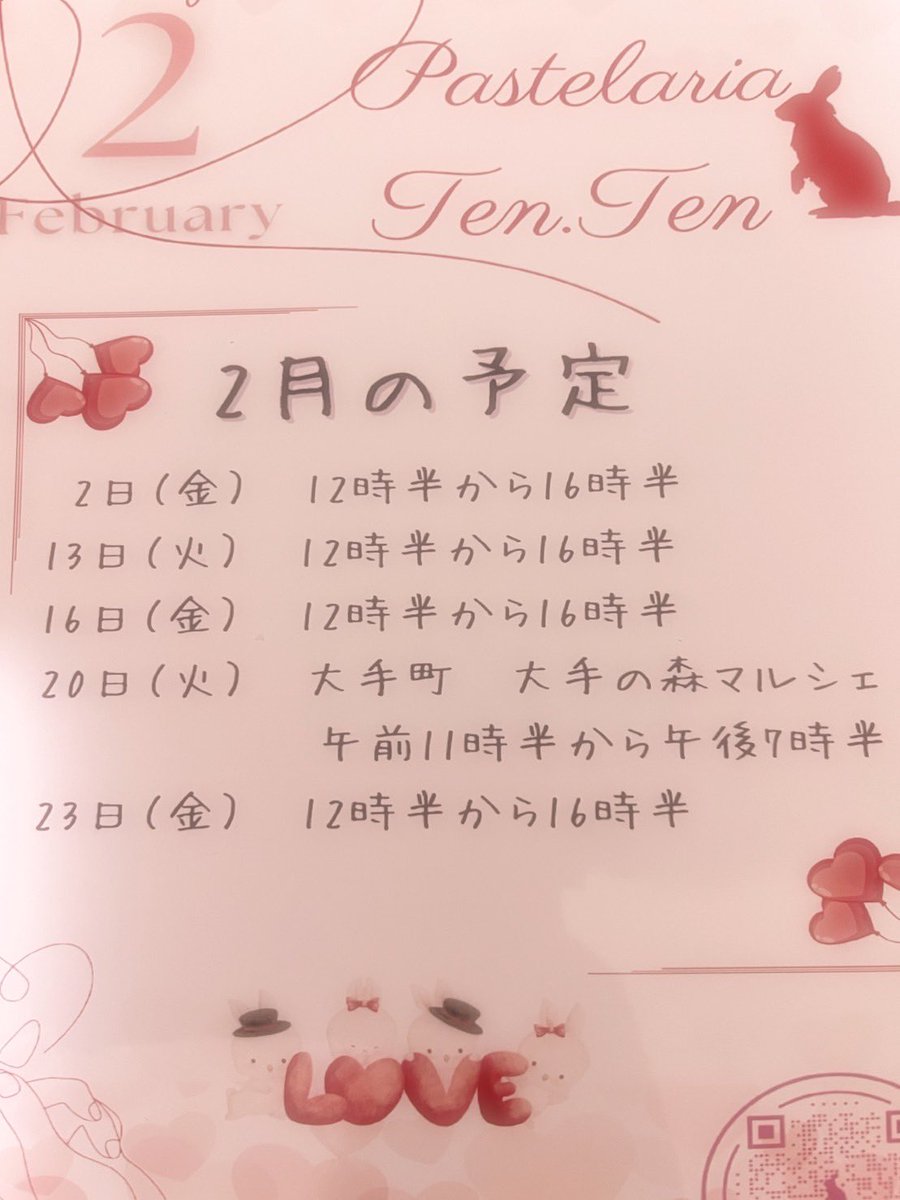 2
February
Pastelaria
Ten.Ten
2月の予定
2日(金) 12時半から16時半
13日(火) 12時半から16時半
16日(金) 12時半から16時半
20日(火) 大手町 大手の森マルシェ
午前11時半から午後7時半
23日(金) 12時半から16時半
LOVE